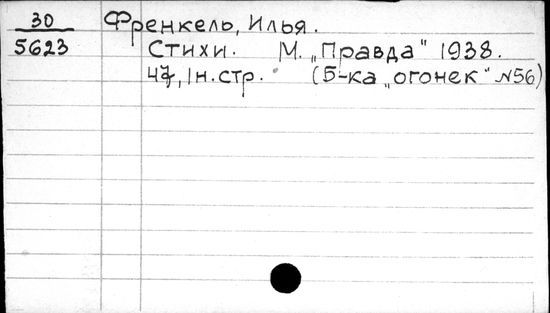 30 Френкель, Илья.
5623 Стихи. М. „Правда“ 1938.
47, 1 н. стр. (Б-ка „огонек“ №56)